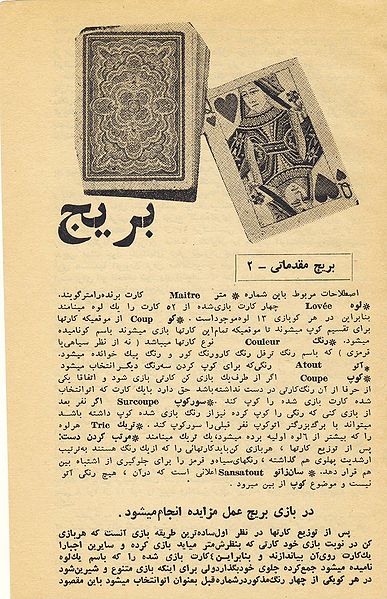 Q
بریج
بریج مقدماتی - ۲
اصطلاحات مربوط باین شماره * متر Maitre کارت برنده رامترگویند.
* لوه Lovée چهار کارت بازی‌شده از ۵۲ کارت را یك لوه مینامند
بنابراین در هر کوبازی ۱۳ لوه‌موجوداست. * کو Coup از موقعیکه کارتها
برای تقسیم کوپ میشوند تا موقعیکه تمام‌این کارتها بازی میشوند باسم کونامیده
میشود. * رنگ Couleur نوع کارتها میباشد (نه از نظر سیاهی‌یا
قرمزی) که باسم رنگ ترفل رنگ کارورنگ کور و رنگ پیك خوانده میشود.
* آتو Atout رنگی‌که برای کوپ کردن سه‌رنگ دیگرانتخاب میشود
* کوپ Coupe اگر از طرف‌یك بازی کن کارتی بازی شود و اتفاقا یکی
از حرفا از آن رنگ‌کارتی در دست نداشته‌باشد حق دارد بایك کارت که آتوانتخاب
شده کارت بازی شده را کوپ کند. * سورکوپ Surcoupe اگر نفر بعد
از بازی کنی که رنگی را کوپ کرده نیزاز رنگ بازی شده کوپ داشته باشد
میتواند با برگ‌بزرگتر آتوکوپ نفر قبلی‌را سورکوپ کند. * تریك Tric هرلوه
را که بیشتر از ۶لوه اولیه برده میشود، یك تریك مینامند * مرتب کردن دست:
پس از توزیع کارتها، هربازی کن‌بایدکارتهائی را که‌ازیك رنگ هستند به‌ترتیب
ارشدیت پهلوی هم گذاشته، رنگهای‌سیاه‌و قرمز را برای جلوگیری از اشتباه بین
هم قرار دهد. * سان‌زاتو Sansatout اعلانی است که درآن، هیچ رنگی آتو
نیست و موضوع کوپ از بین میرود.
در بازی بریج عمل مزایده انجام‌میشود.
پس از توزیع کارتها در نظر اول‌ساده‌ترین طریقه بازی آنست که هربازی
کن در نوبت بازی خود کارتی که بنظرش‌متر میاید بازی کرده و سایرین اجبارا
یك‌کارت روی‌آن بیاندازند و بنابراین‌٤کارت بازی شده را که باسم یك‌لوه
نامیده میشود جمع‌کرده جلوی خودبگذارد‌ولی برای اینکه بازی متنوع و شیرین‌شود
در هر کویکی از چهار رنگ‌مذکوردرشماره‌قبل بعنوان آتوانتخاب میشود باین مقصود